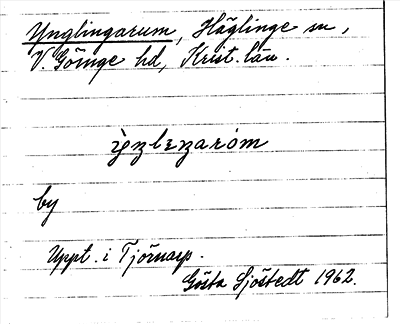 Ynglingarum, Häglinge sn,
V. Göinge hd, Krist. län.
by
Uppt. i Tjörnarp.
Gösta Sjöstedt 1962.